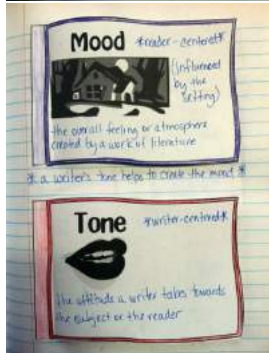 Mood *reader-centered*
(influenced
by the
setting)
the overall feeling or atmosphere
created by a work of literature
* a writer's tone helps to create the mood *
Tone *writer-centered*
the attitude a writer takes towards
the subject or the reader